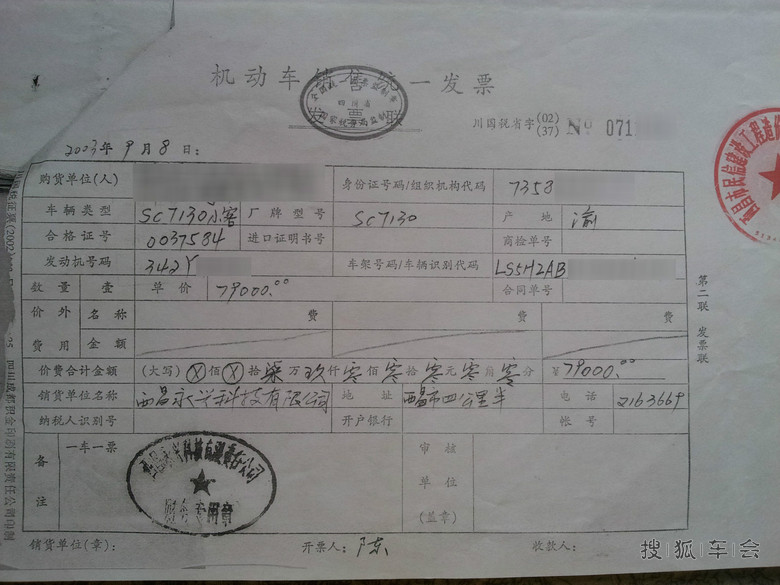 机动车销售统一发票
发票联
四川省
川国税省字(02)(37) No 071
2003年9月8日:
购货单位(人) 身份证号码/组织机构代码 7358
车辆类型 SC7130小客 厂牌型号 SC7130 产地 渝
合格证号 0037584 进口证明书号 商检单号
发动机号码 342Y 车架号码/车辆识别代码 LS5H2AB
数量 壹 单价 79000.00 合同单号
价外费用 名称 费 费 费
金额
价费合计金额 (大写) ⓧ佰ⓧ拾柒万玖仟零佰零拾零元零角零分 ¥79000.00
销货单位名称 西昌永兴科技有限公司 地址 西昌市四公里半 电话 2163669
纳税人识别号 开户银行 帐号
备注 一车一票 审核单位(盖章)
财务专用章
销货单位(章): 开票人: 陈 收款人:
第二联 发票联
西昌市民信建设工程造价
搜狐车会